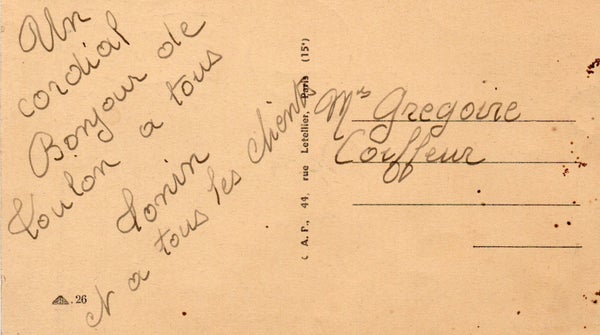 Un
cordial
Bonjour de
Toulon a tous
Tonin
N a tous les clients
A. P., 44, rue Letellier, Paris (15e)
Mrs Gregoire
Coiffeur
26